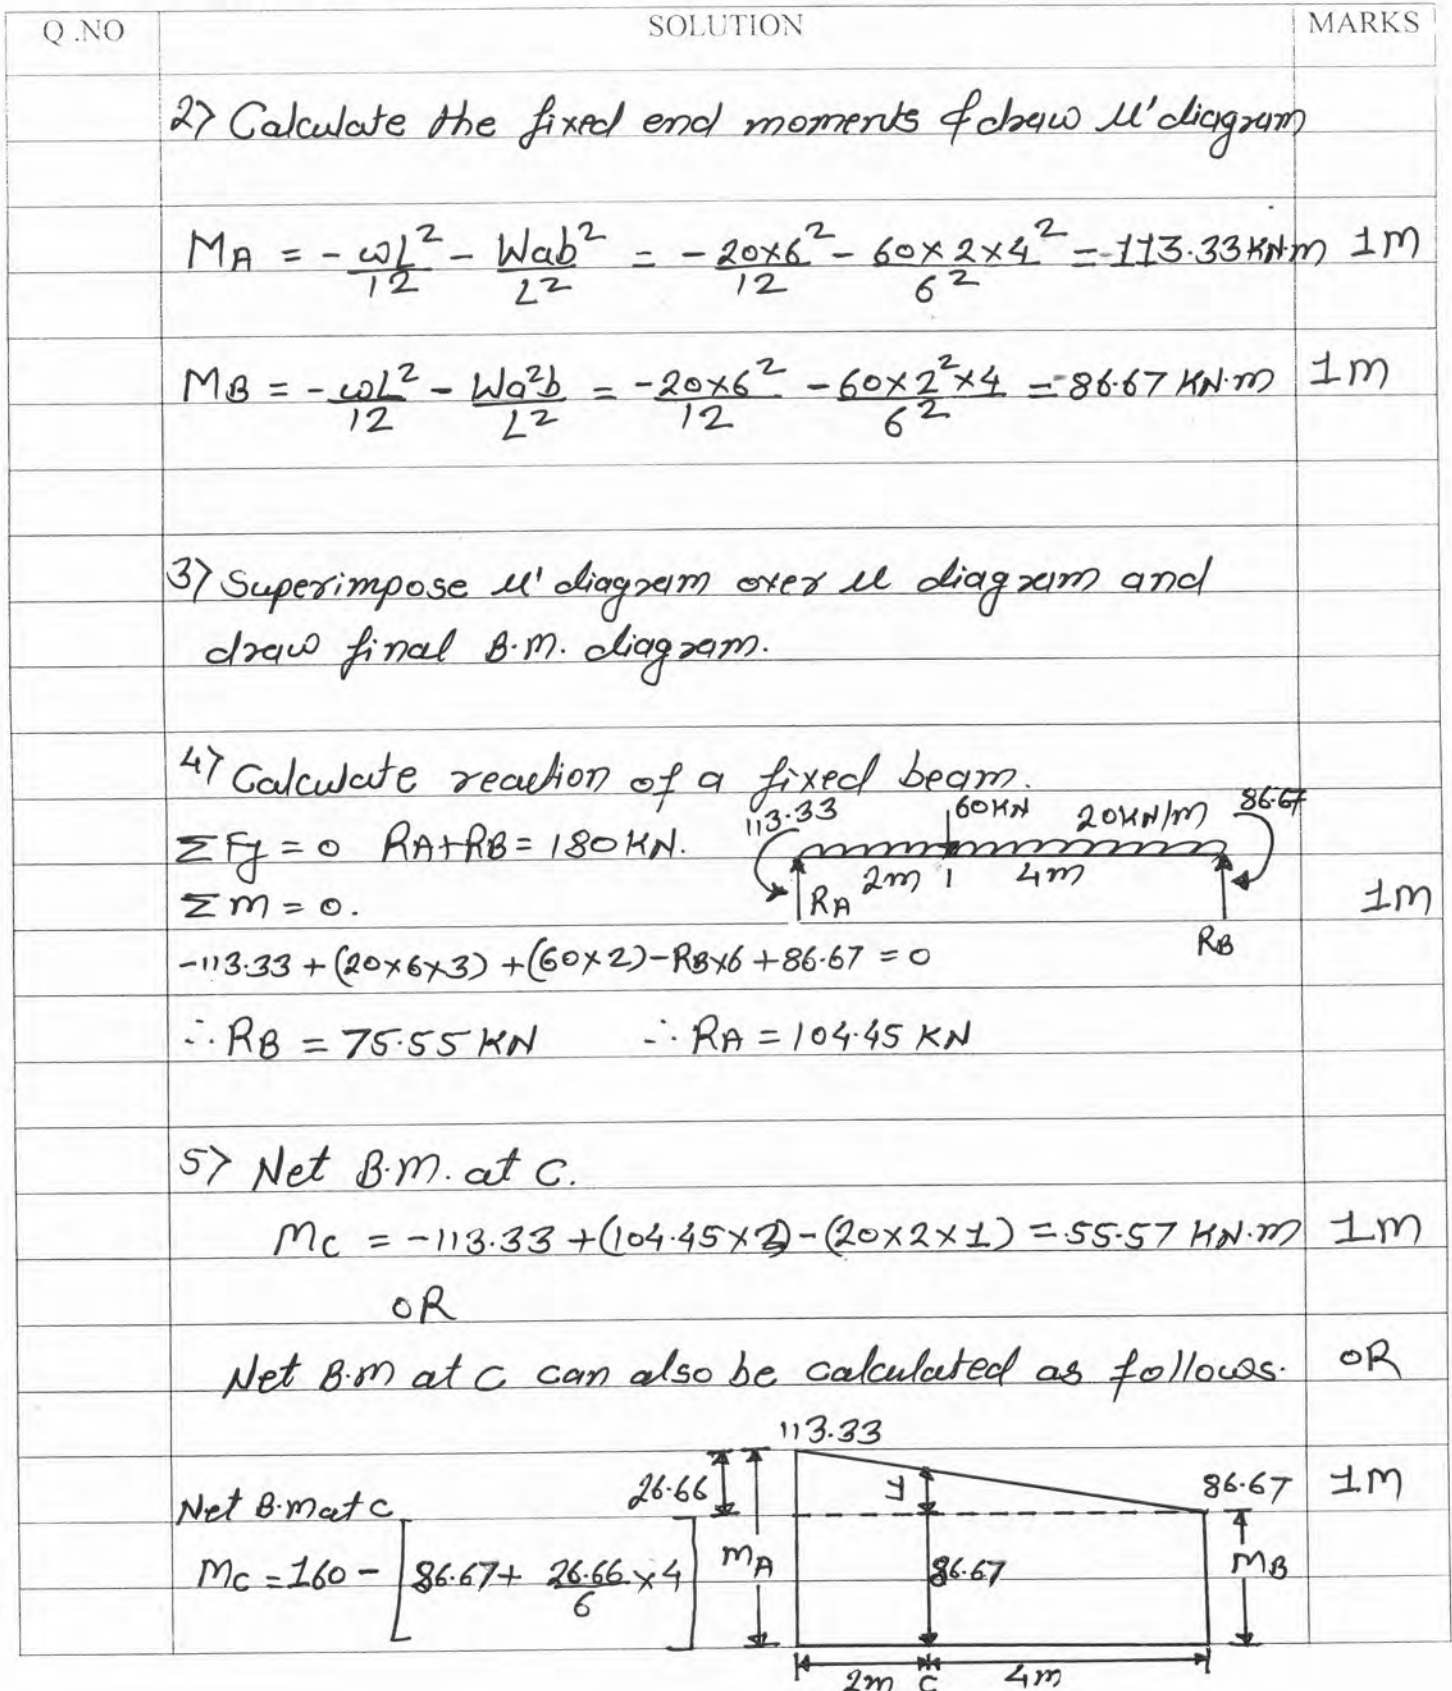 Q.NO SOLUTION MARKS
2> Calculate the fixed end moments & draw μ' diagram
MA = -ωL²/12 - Wab²/L² = -20×6²/12 - 60×2×4²/6² = -113.33 KN.m 1M
MB = -ωL²/12 - Wa²b/L² = -20×6²/12 - 60×2²×4/6² = -86.67 KN.m 1M
3> Superimpose μ' diagram over μ diagram and
draw final B.M. diagram.
4> Calculate reaction of a fixed beam.
113.33 60KN 20KN/m 86.67
ΣFy = 0 RA+RB = 180 KN.
2m 4m
Σm = 0. RA 1M
RB
-113.33 + (20×6×3) + (60×2) - RB×6 + 86.67 = 0
∴ RB = 75.55 KN ∴ RA = 104.45 KN
5> Net B.M. at C.
Mc = -113.33 + (104.45×2) - (20×2×1) = 55.57 KN.m 1M
OR
Net B.M at C can also be calculated as follows. OR
113.33
26.66 y 86.67 1M
Net B.M at C
Mc = 160 - [86.67 + 26.66/6 × 4] MA 86.67 MB
2m C 4m